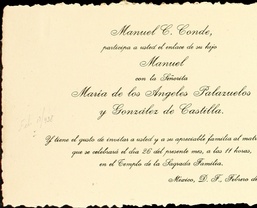 Manuel C. Conde,
participa a usted el enlace de su hijo
Manuel
con la Señorita
María de los Angeles Palazuelos
y González de Castilla.
Y tiene el gusto de invitar a usted y a su apreciable familia al matr
que se celebrará el día 26 del presente mes, a las 11 horas,
en el Templo de la Sagrada Familia.
México, D. F., Febrero de